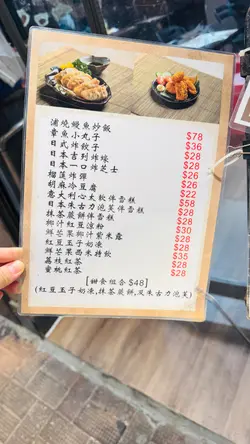 浦燒鰻魚炒飯 $78
章魚小丸子 $36
日式炸餃子 $28
日本吉列炸蠔 $28
日本一口炸芝士 $28
榴蓮炸彈 $26
胡麻冷豆腐 $22
意大利心太軟伴雪糕 $58
日本朱古力泡芙伴雪糕 $28
抹茶蕨餅伴雪糕 $28
椰汁紅豆涼粉 $30
鮮芒果椰汁紫米露 $28
紅豆玉子奶凍 $28
鮮芒果西米特飲 $35
荔枝紅茶 $28
蜜桃紅茶 $28
[甜食組合 $48]
(紅豆玉子奶凍,抹茶蕨餅,及朱古力泡芙)